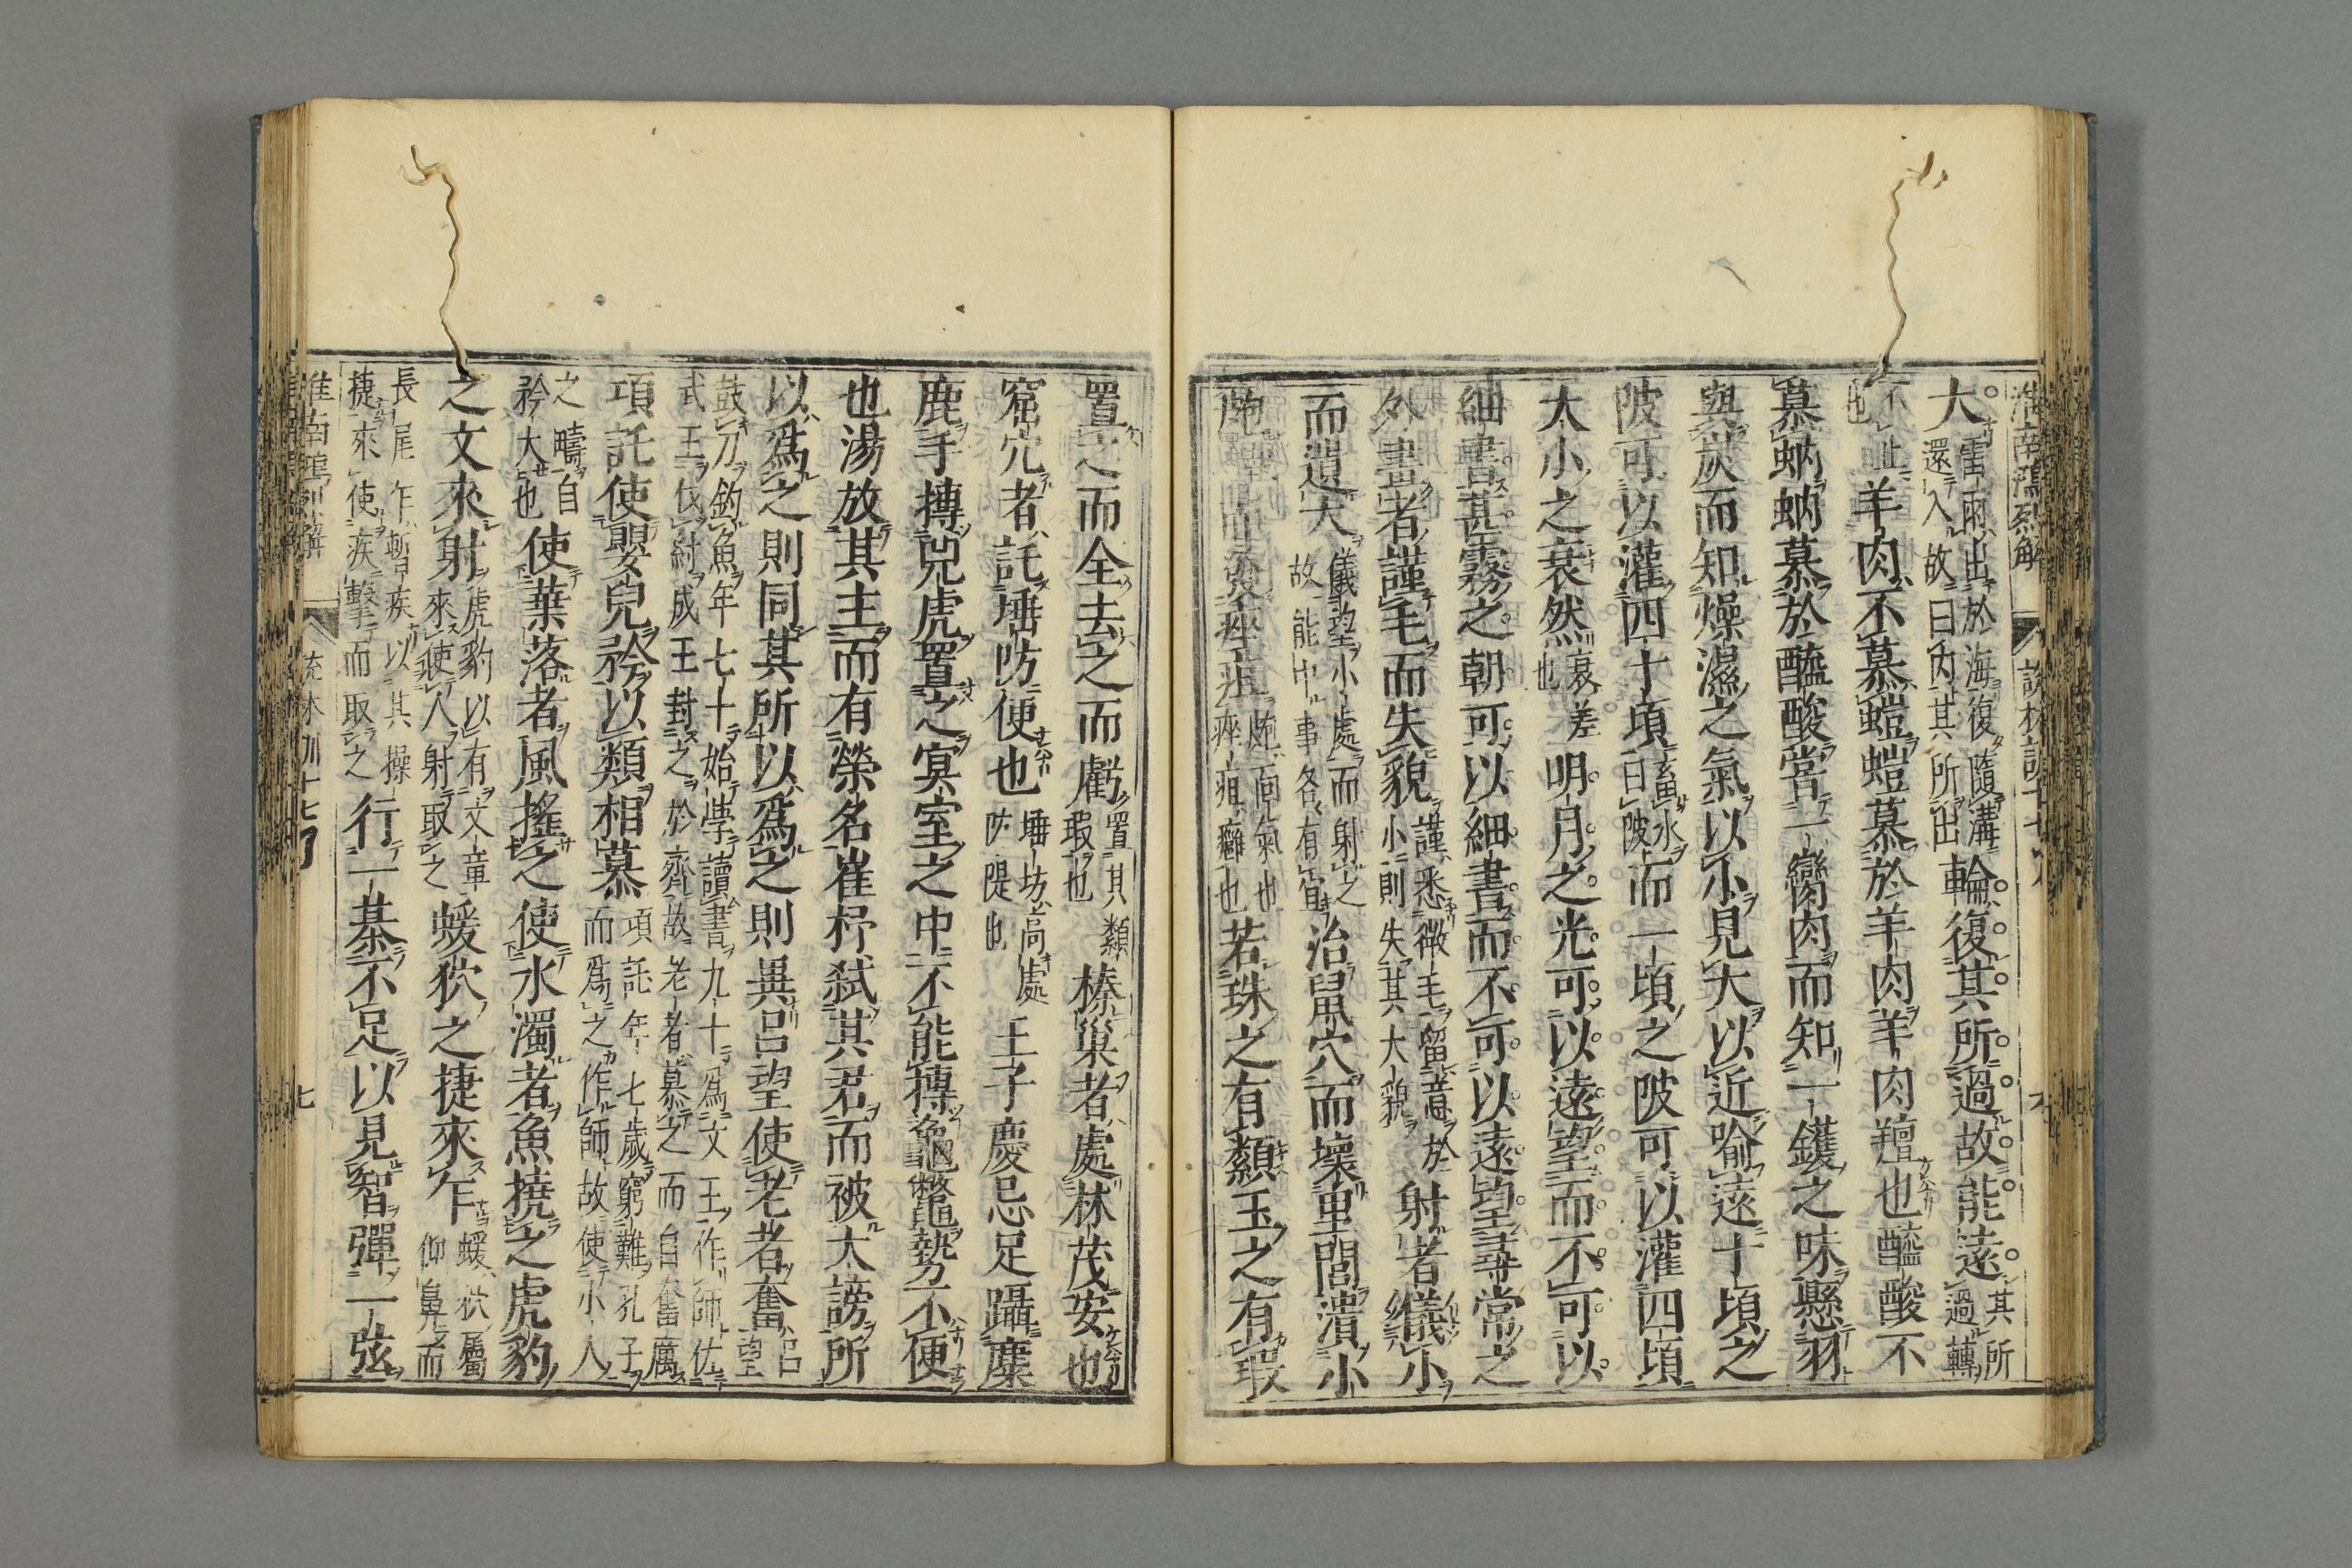 淮南鴻烈解 說林訓十七 六
大雷雨出於海復隨溝還入故曰內其所出輪復其所過故能遠其所過轉
不止也羊肉不慕螘螘慕於羊肉羊肉羶也醯酸不
慕蚋蚋慕於醯酸嘗一臠肉而知一鑊之味懸羽
與炭而知燥濕之氣以小見大以近喻遠十頃之
陂可以灌四十頃畜水曰陂而一頃之陂可以灌四頃
大小之衰然衰差也明月之光可以遠望而不可以
細書甚霧之朝可以細書而不可以遠望尋常之
外畫者謹毛而失貌謹悉微毛留意於小則失其大貌射者儀小
而遺大儀望小處而射之故能中事各有宜治鼠穴而壞里閭潰小
皰而發痤疽皰面氣也痤疽癰也若珠之有纇玉之有瑕
置之而全去之而虧置其纇瑕也榛巢者處林茂安也
窟穴者託埵防便也埵坊高處防隄也王子慶忌足躡麋
鹿手搏兕虎置之冥室之中不能搏龜鼈勢不便
也湯放其主而有榮名崔杼弒其君而被大謗所
以爲之則同其所以爲之則異呂望使老者奮呂望
鼓刀釣魚年七十始學讀書九十爲文王作師佐武王伐紂成王封之於齊故老者慕之而自奮厲
項託使嬰兒矜以類相慕項託年七歲窮難孔子而爲之作師故使小人
之疇自矜大也使葉落者風搖之使水濁者魚撓之虎豹
之文來射虎豹以有文章來使人射取之蝯狖之捷來乍蝯狖屬仰鼻而
長尾乍暫疾以其操捷來使疾擊而取之行一棊不足以見智彈一弦
淮南鴻烈解 說林訓十七 七